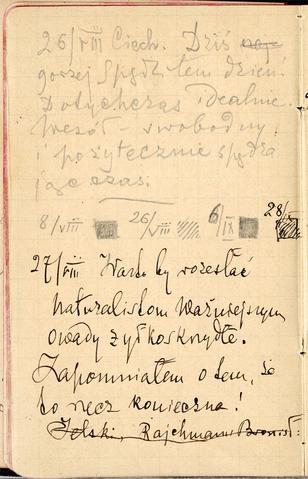 26/VIII Ciech. Dziś naj-
gorzej spędziłem dzień!
Dotychczas idealnie.
Wesół - swobodny
i pożytecznie spędza-
jąc czas.
8/VIII 26/VIII 6/IX 28/
27/VIII Warto by rozesłać
naturalistom ważniejszym
owady żyłkoskrzydłe.
Zapomniałem o tem, że
to rzecz konieczna!
Jelski, Rajchman Bronisł.